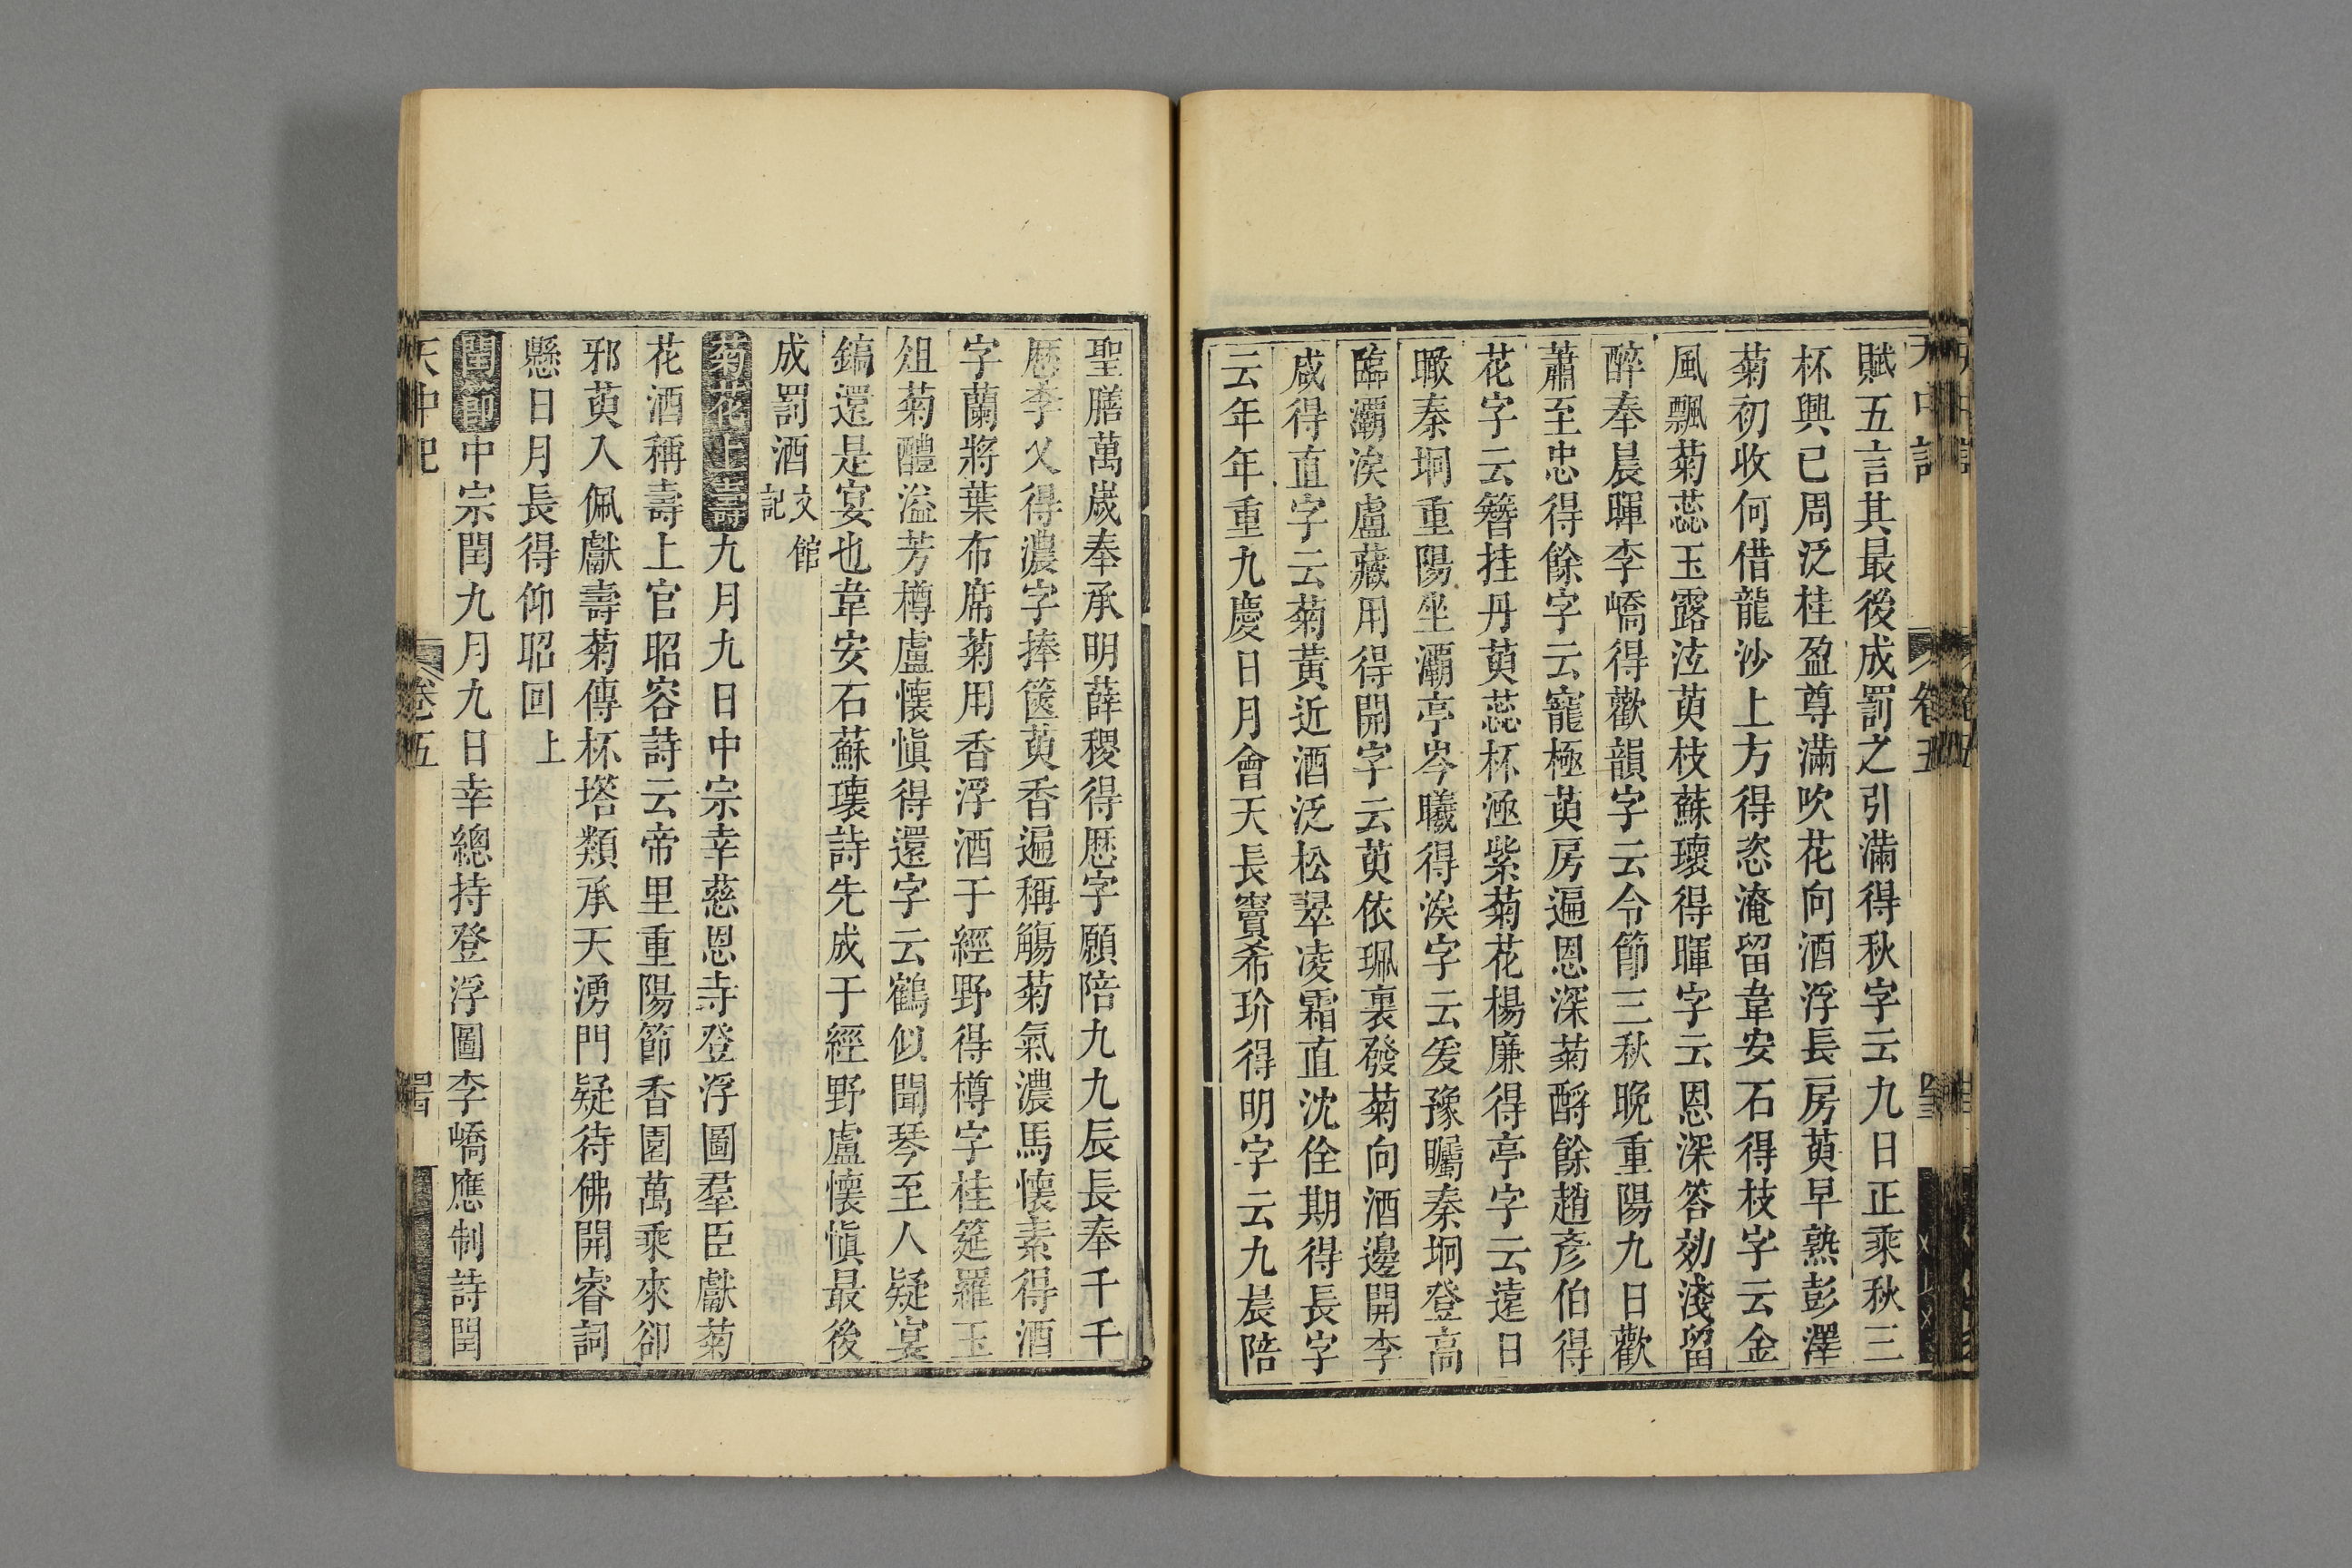 賦五言其最後成罰之引滿得秋字云九日正乘秋三
杯興已周泛桂盈尊滿吹花向酒浮長房萸早熟彭澤
菊初收何借龍沙上方得恣淹留韋安石得枝字云金
風飄菊蕊玉露泫萸枝蘇瓌得暉字云恩深答効淺留
醉奉晨暉李嶠得歡韻字云令節三秋晚重陽九日歡
蕭至忠得餘字云寵極萸房遍恩深菊酹餘趙彥伯得
花字云簪挂丹萸蕊杯涵紫菊花楊廉得亭字云遠日
瞰秦坰重陽坐灞亭岑曦得涘字云爰豫矚秦坰登高
臨灞涘盧藏用得開字云萸依珮裏發菊向酒邊開李
咸得直字云菊黃近酒泛松翠凌霜直沈佺期得長字
云年年重九慶日月會天長竇希玠得明字云九晨陪
聖膳萬歲奉承明薛稷得歷字願陪九九辰長奉千千
歷李乂得濃字捧篋萸香遍稱觴菊氣濃馬懷素得酒
字蘭將葉布席菊用香浮酒于經野得樽字桂筵羅玉
俎菊醴溢芳樽盧懷愼得還字云鶴似聞琴至人疑宴
鎬還是宴也韋安石蘇瓌詩先成于經野盧懷愼最後
成罰酒文館記
菊花上壽詩九月九日中宗幸慈恩寺登浮圖羣臣獻菊
花酒稱壽上官昭容詩云帝里重陽節香園萬乘來卻
邪萸入佩獻壽菊傳杯塔類承天湧門疑待佛開睿詞
懸日月長得仰昭回上
閏節中宗閏九月九日幸總持登浮圖李嶠應制詩閏
天中記
卷五